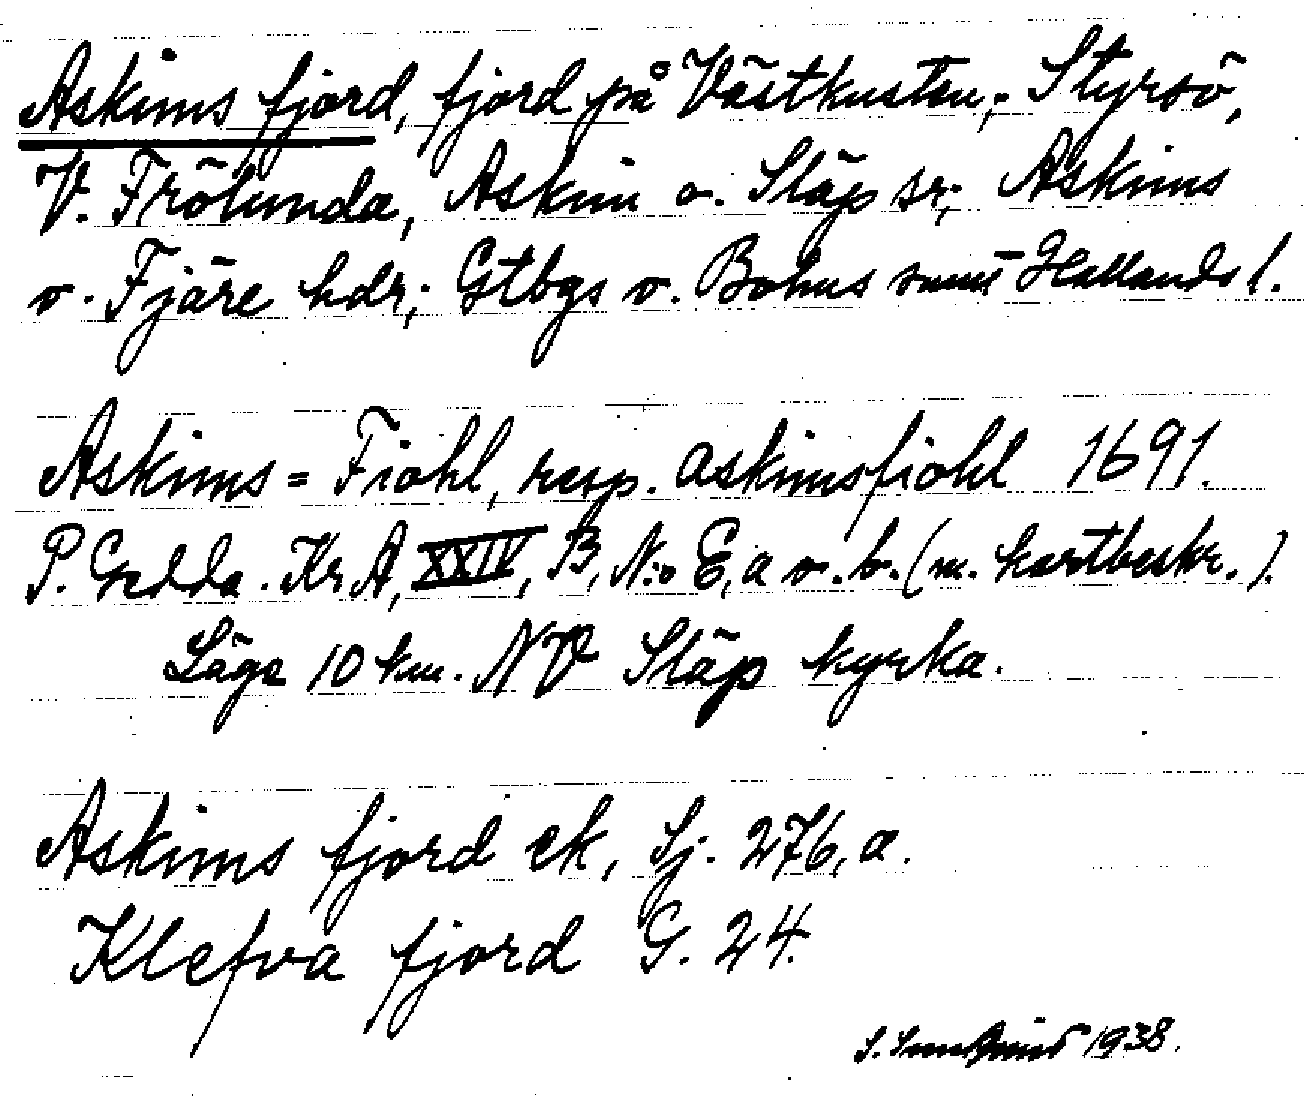 Askims fjord, fjord på Västkusten; Styrsö,
V. Frölunda, Askim o. Släp sr; Askims
o. Fjäre hdr; Gtbgs o. Bohus samt Hallands l.
Askims=Fiohl, resp. askimsfiohl 1691.
P. Gedda. Kr. A, XXIV, B, N:o E, a o. b. (m. kartbeskr.).
Läge 10 km. NV Släp kyrka.
Askims fjord ek, Sj. 276, a.
Klefva fjord G. 24.
1938.